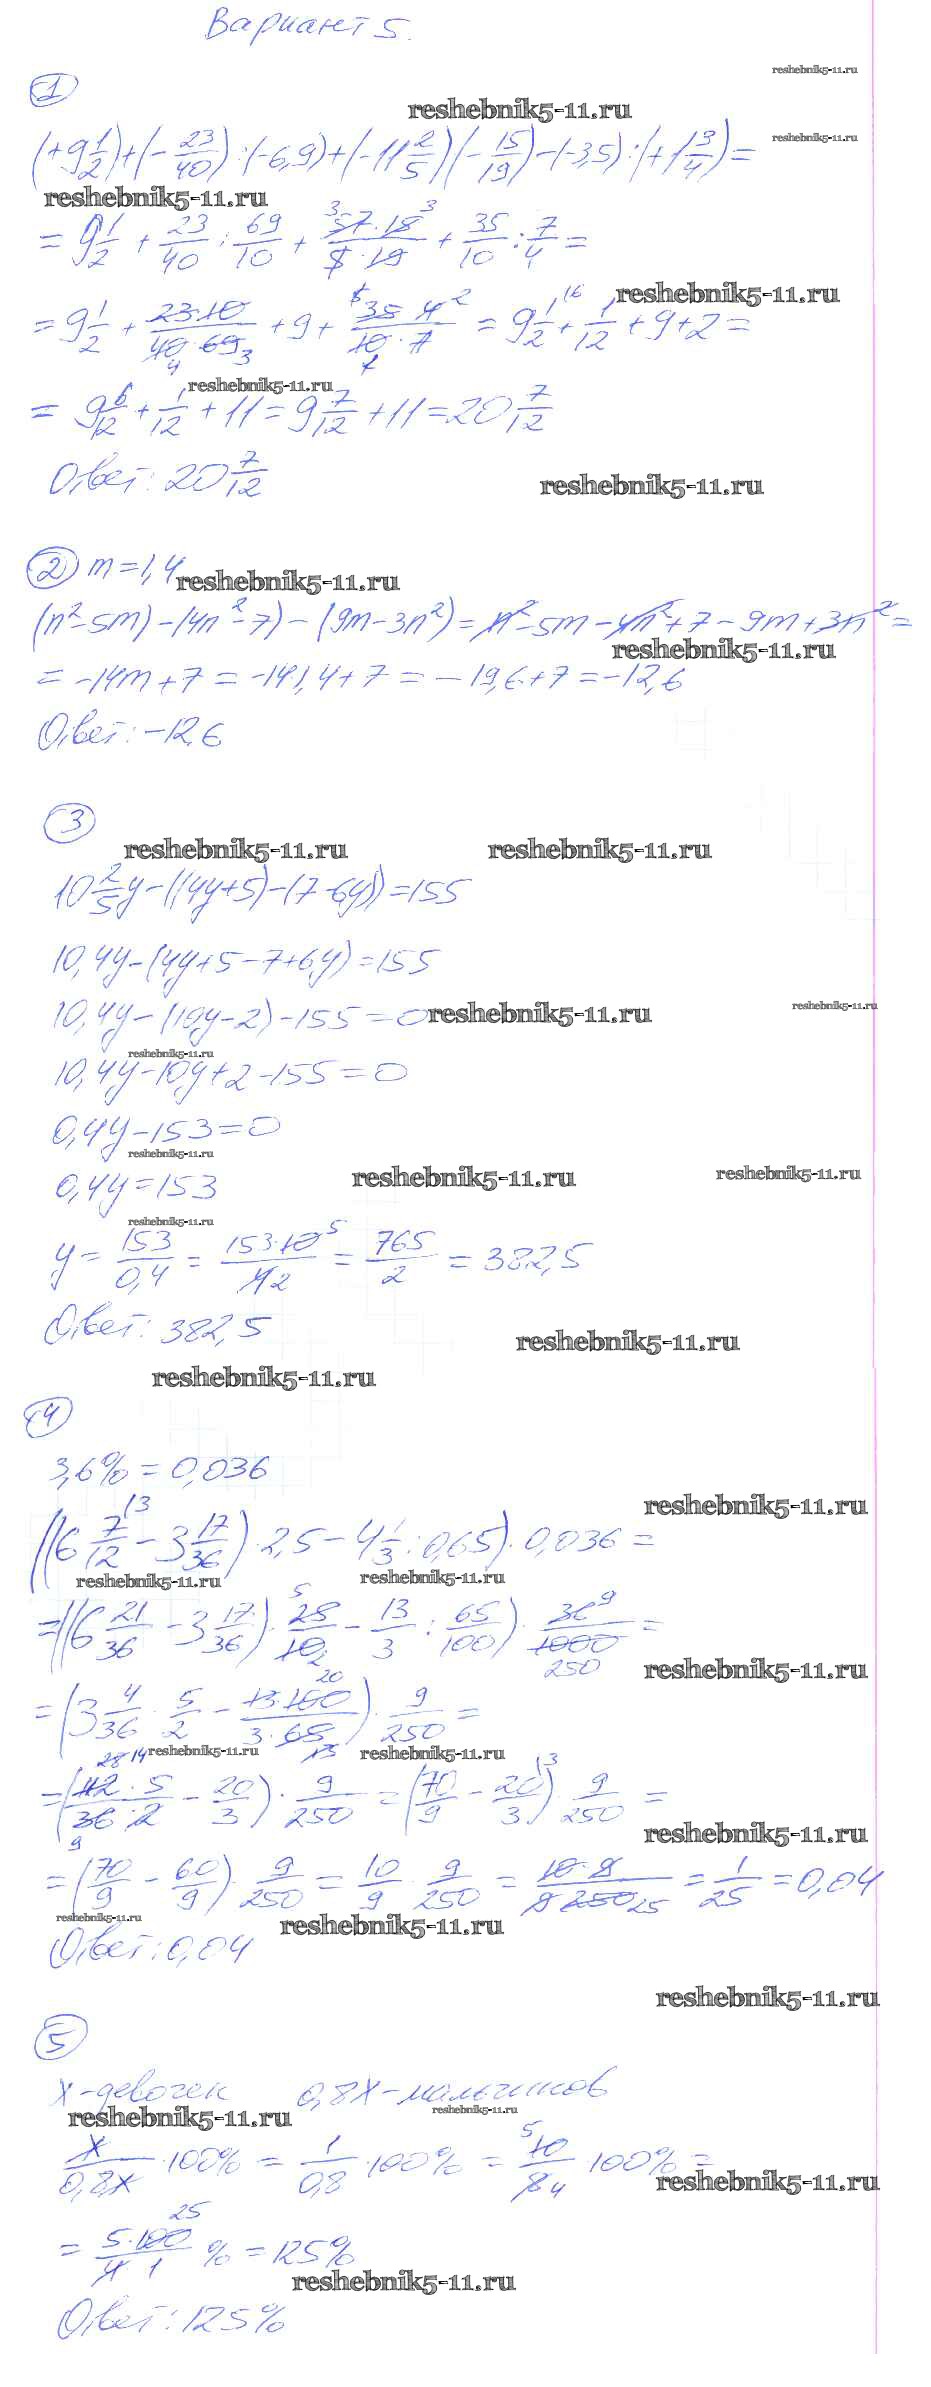 Вариант 5.
reshebnik5-11.ru
①
reshebnik5-11.ru
reshebnik5-11.ru
(+9 1/2)+(-23/40):(-6,9)+(-11 2/5)(-15/19)-(-3,5):(+1 3/4)=
reshebnik5-11.ru
=9 1/2+23/40:69/10+57·15/5·19+35/10:7/4=
reshebnik5-11.ru
=9 1/2+23·10/40·69+9+35·4/10·7=9 1/2+1/12+9+2=
reshebnik5-11.ru
=9 6/12+1/12+11=9 7/12+11=20 7/12
Ответ: 20 7/12
reshebnik5-11.ru
② m=1,4
reshebnik5-11.ru
(n²-5m)-(4n²-7)-(9m-3n²)=n²-5m-4n²+7-9m+3n²=
reshebnik5-11.ru
=-14m+7=-14·1,4+7=-19,6+7=-12,6
Ответ: -12,6
③
reshebnik5-11.ru reshebnik5-11.ru
10 2/5y-((4y+5)-(7-6y))=155
10,4y-(4y+5-7+6y)=155
reshebnik5-11.ru
10,4y-(10y-2)-155=0 reshebnik5-11.ru
reshebnik5-11.ru
10,4y-10y+2-155=0
0,4y-153=0
reshebnik5-11.ru
reshebnik5-11.ru reshebnik5-11.ru
0,4y=153
reshebnik5-11.ru
y=153/0,4=153·10/4=765/2=382,5
Ответ: 382,5
reshebnik5-11.ru
reshebnik5-11.ru
④
3,6%=0,036
reshebnik5-11.ru
((6 7/12-3 17/36)·2,5-4 1/3:0,65)·0,036=
reshebnik5-11.ru reshebnik5-11.ru
=((6 21/36-3 17/36)·25/10-13/3:65/100)·36/1000=
reshebnik5-11.ru
=(3 4/36·5/2-13·100/3·65)·9/250=
reshebnik5-11.ru reshebnik5-11.ru
=(112·5/36·2-20/3)·9/250=(70/9-20/3)·9/250=
reshebnik5-11.ru
=(70/9-60/9)·9/250=10/9·9/250=10·9/9·250=1/25=0,04
reshebnik5-11.ru reshebnik5-11.ru
Ответ: 0,04
reshebnik5-11.ru
⑤
x-девочек 0,8x-мальчиков
reshebnik5-11.ru reshebnik5-11.ru
x/0,8x·100%=1/0,8·100%=10/8·100%=
reshebnik5-11.ru
=5·100/4%=125%
reshebnik5-11.ru
Ответ: 125%